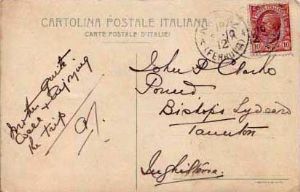 CARTOLINA POSTALE ITALIANA
CARTE POSTALE D'ITALIE
Mother quite
well & enjoying
the trip
John P Clarke
Pound
Bishops Lydeard
Taunton
Inghilterra
12
10